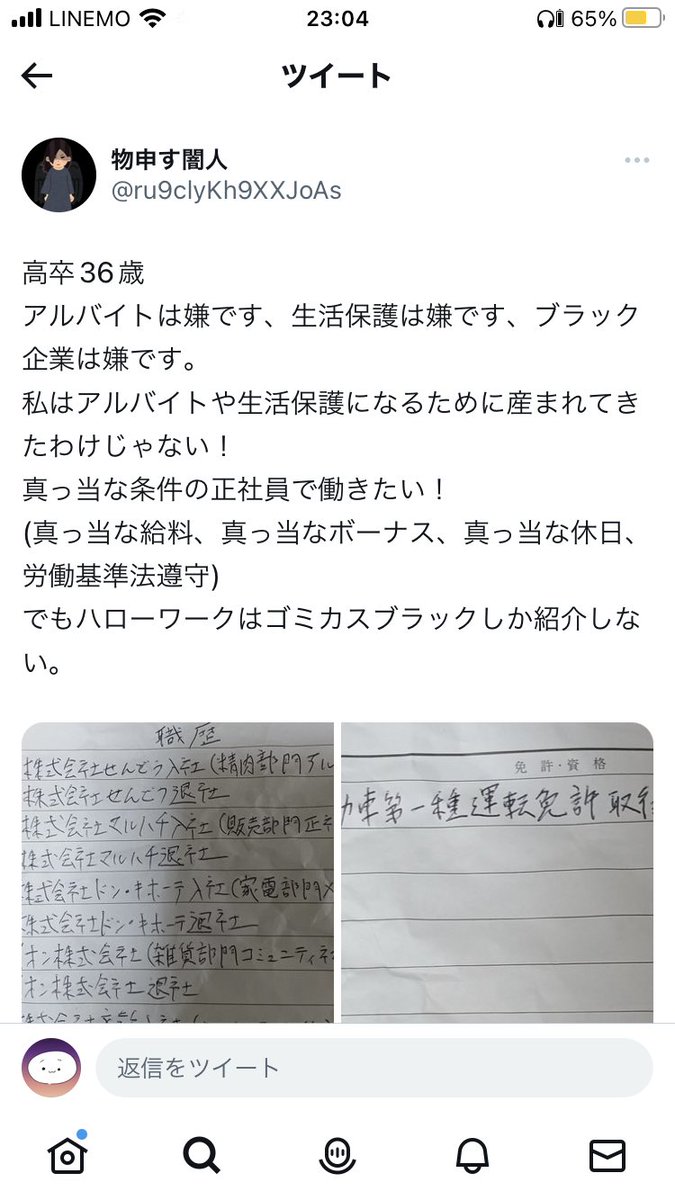 LINEMO
23:04
65%
ツイート
物申す闇人
@ru9clyKh9XXJoAs
高卒36歳
アルバイトは嫌です、生活保護は嫌です、ブラック
企業は嫌です。
私はアルバイトや生活保護になるために産まれてき
たわけじゃない！
真っ当な条件の正社員で働きたい！
(真っ当な給料、真っ当なボーナス、真っ当な休日、
労働基準法遵守)
でもハローワークはゴミカスブラックしか紹介しな
い。
職歴
株式会社せんどう入社(精肉部門アル
株式会社せんどう退社
株式会社マルハチ入社(販売部門正社
株式会社マルハチ退社
株式会社ドン・キホーテ入社(家電部門メ
株式会社ドン・キホーテ退社
オン株式会社(雑貨部門コミュニティ社
オン株式会社退社
免許・資格
力車第一種運転免許取得
返信をツイート